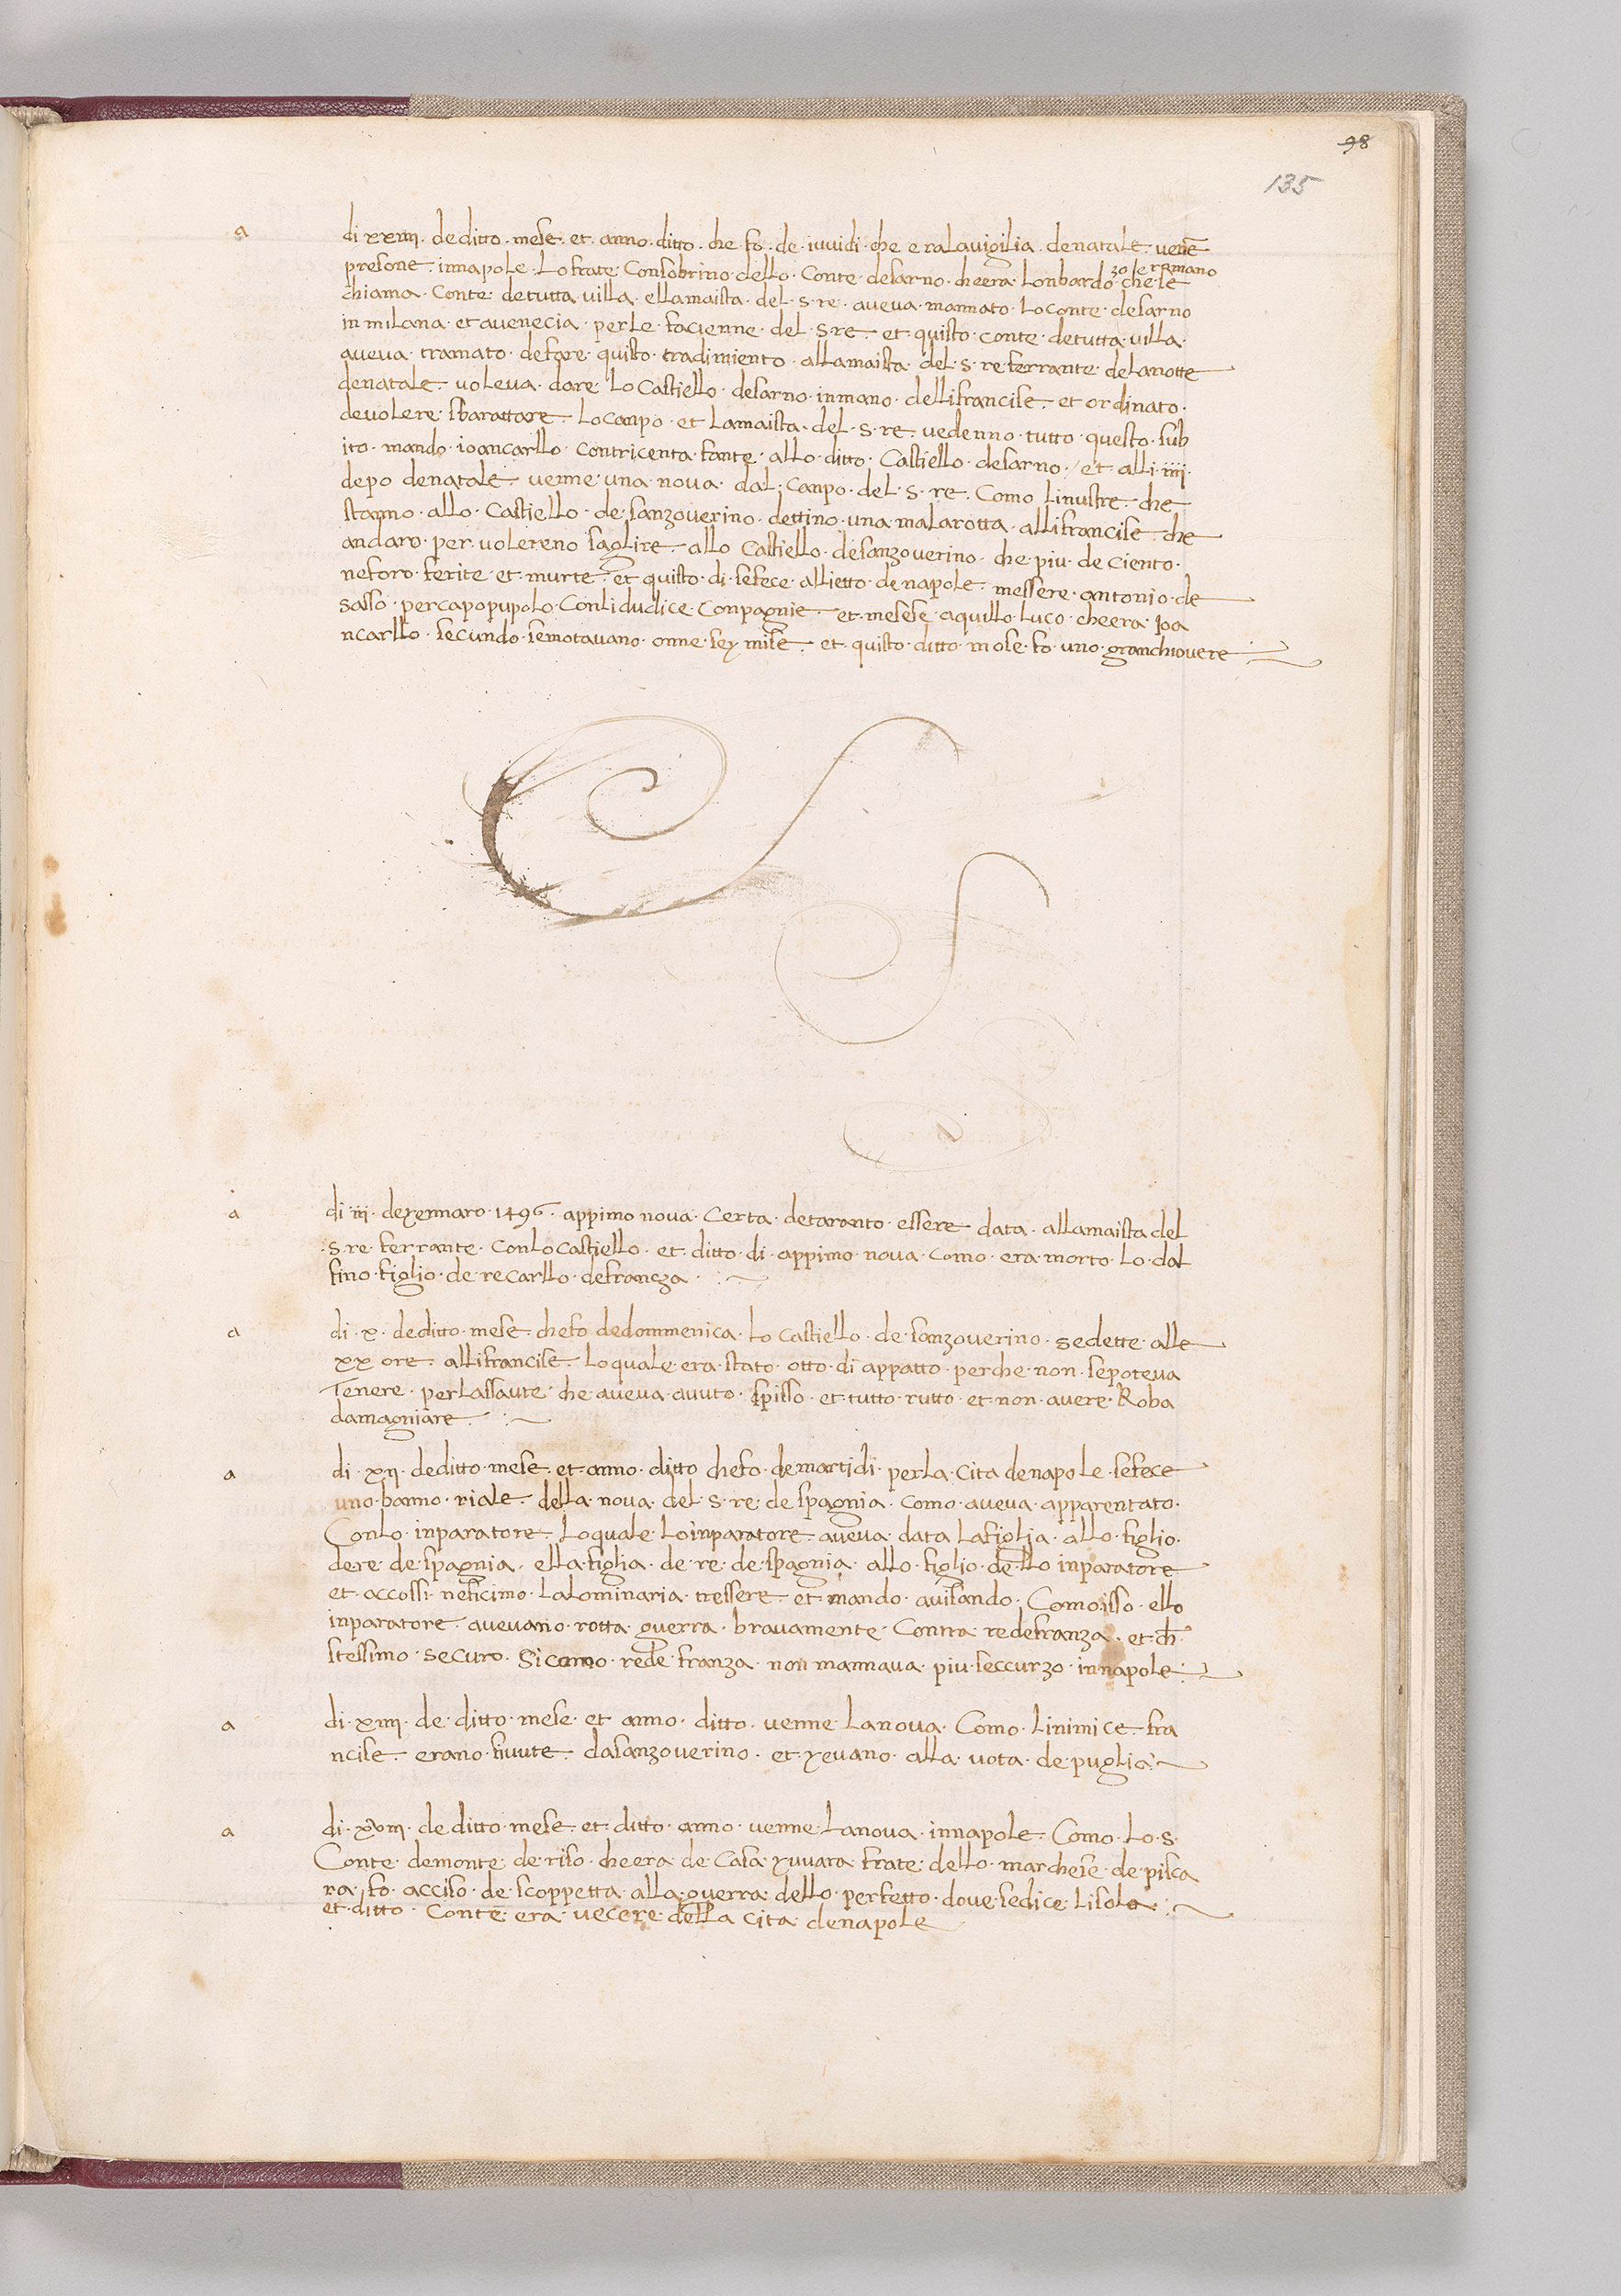 98
135
a
di xxiiii · de ditto · mese · et · anno · ditto · che fo · de · iuvidi · che era lavigilia · denatale · venē
presone · innapole · Lo frate Consobrino · dello · Conte · desarno · cheera · Lonbardo · che le
zo Iermano
chiama · Conte · detutta · villa · ellamaista · del · s · re · aveva · mannato · Loconte · desarno
in milana · et avenecia · perle · facienne · del · s · re · et · quisto · conte · detutta · villa ·
aveva · tramato · defare · quisto · tradimiento · allamaista · del · s · re ferrante · delanotte
denatale · voleva · dare · lo Castiello · desarno · inmano · dellifrancise · et ordinato ·
devolere · sbarattare · Locanpo · et Lamaista · del · s · re · vedenno · tutto · questo · sub
ito · mando · ioancarllo · contricenta · fante · allo · ditto · Castiello · desarno · / et alli · iiii ·
depo denatale · venne · una · nova · dal · canpo · del · s · re · Como linustre · che
stanno · allo · Castiello · de · sanzoverino · dettino · una · malarotta · allifrancise · che
andaro · per · volereno saglire · allo Castiello · desanzoverino · che · piu · de ciento ·
neforo · ferite · et · murte · et quisto · di · sefece · alliетto · de napole · messere · antonio · de
sasso · percapopupolo · Conlidudice · Conpagnie · et · mesese · aquillo · luco · cheera · Ioa
ncarllo · secundo · semotavano · onne · sey mise · et · quisto · ditto · mese · fo · uno · granchiovere
a
di · iii · deyennaro · 1496 · appimo nova · Certa · detaranto · essere · data · allamaista del
· s · re · ferrante · Conlo Castiello · et ditto · di · appimo · nova · como · era · morto · lo · dal
fino · figlio · de · re carllo · defrancza ·
a
di · x · deditto · mese · chefo dedommenica · Lo Castiello · de · sanzoverino · sedette · alle
xx ore · allifrancise · loquale · era · stato · otto · di · appatto · perche · non · sepoteva
Tenere · perlassaute · che aveva · avuto · spisso · et · tutto · rutto · et · non · avere · Roba
damagniare ·
a
di · xii · deditto · mese · et · anno · ditto chefo · demartidi · perla · Cita denapole · sefece
uno · banno · riale · della · nova · del · s · re · de spagnia · como · aveva · apparentato ·
Conlo · inparatore · Loquale · Loinparatore · aveva · data · Lafiglia · allo · figlio ·
dere · de spagnia · ella · figlia · de · re · de · spagnia · allo · figlio · dello inparatore
et · accossi · neficimo · laLominaria · tressere · et · mando · avisando · Comoisso · ello
inparatore · avevano · rotta · guerra · bravamente · Contra · redefranza · et · ch̄ ·
stessimo · securo · Sicomo · rede · franza · non mannava · piu · seccurzo · innapole ·
a
di · xiiii · de · ditto · mese · et · anno · ditto · venne · Lanova · Como · Linimice · fra
ncise · erano · fiuute · dasanzoverino · et · yevano · alla · vota · de · puglia ·
a
di · xviii · de ditto · mese · et · ditto · anno · venne · Lanova · innapole · Como · Lo · s ·
Conte · demonte · de · riso · cheera · de · Casa · yuvara · frate · dello · marchese · de · pisca
ra · fo · acciso · de · scoppetta · alla · guerra · dello · perfetto · dove · sedice · Lisola ·
et · ditto · Conte · era · vecere · della cita · denapole